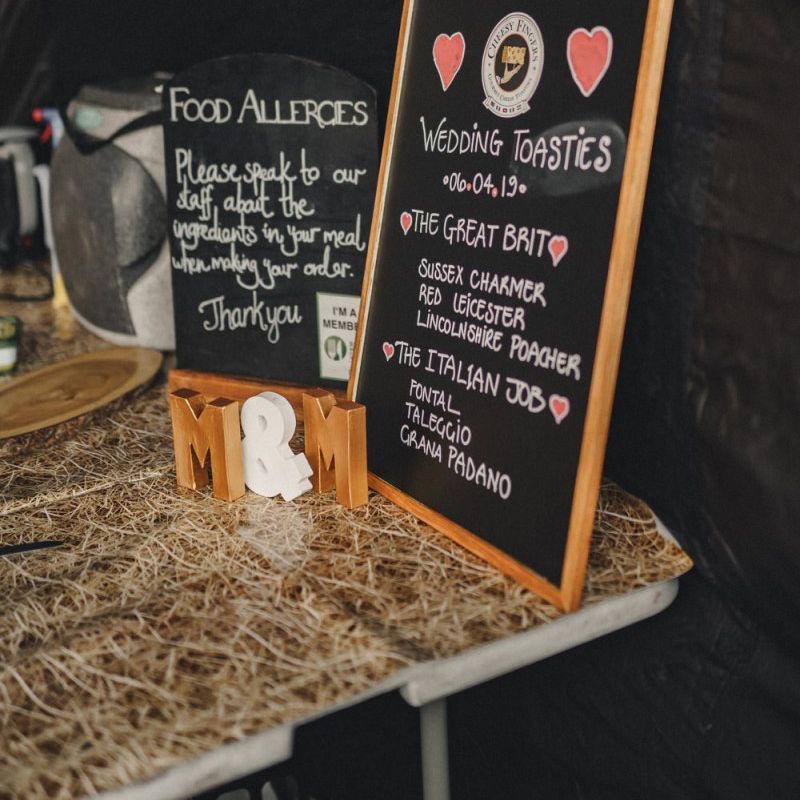 FOOD ALLERGIES
Please speak to our
staff about the
ingredients in your meal
when making your order.
Thank you
I'M A
MEMBE
CHEESY FINGERS
WEDDING TOASTIES
•06.04.19•
THE GREAT BRIT
SUSSEX CHARMER
RED LEICESTER
LINCOLNSHIRE POACHER
THE ITALIAN JOB
FONTAL
TALEGGIO
GRANA PADANO
M&M